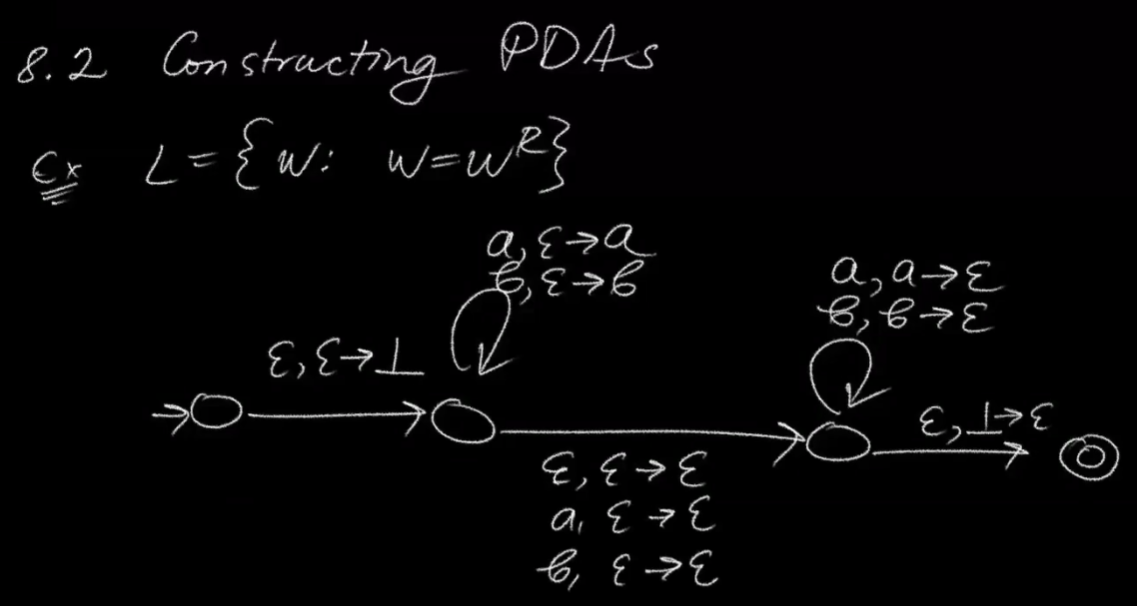 8.2 Constructing PDAs
Ex L = {w: w = w^R}
a, ε → a
b, ε → b
a, a → ε
b, b → ε
ε, ε → ⊥
ε, ⊥ → ε
ε, ε → ε
a, ε → ε
b, ε → ε